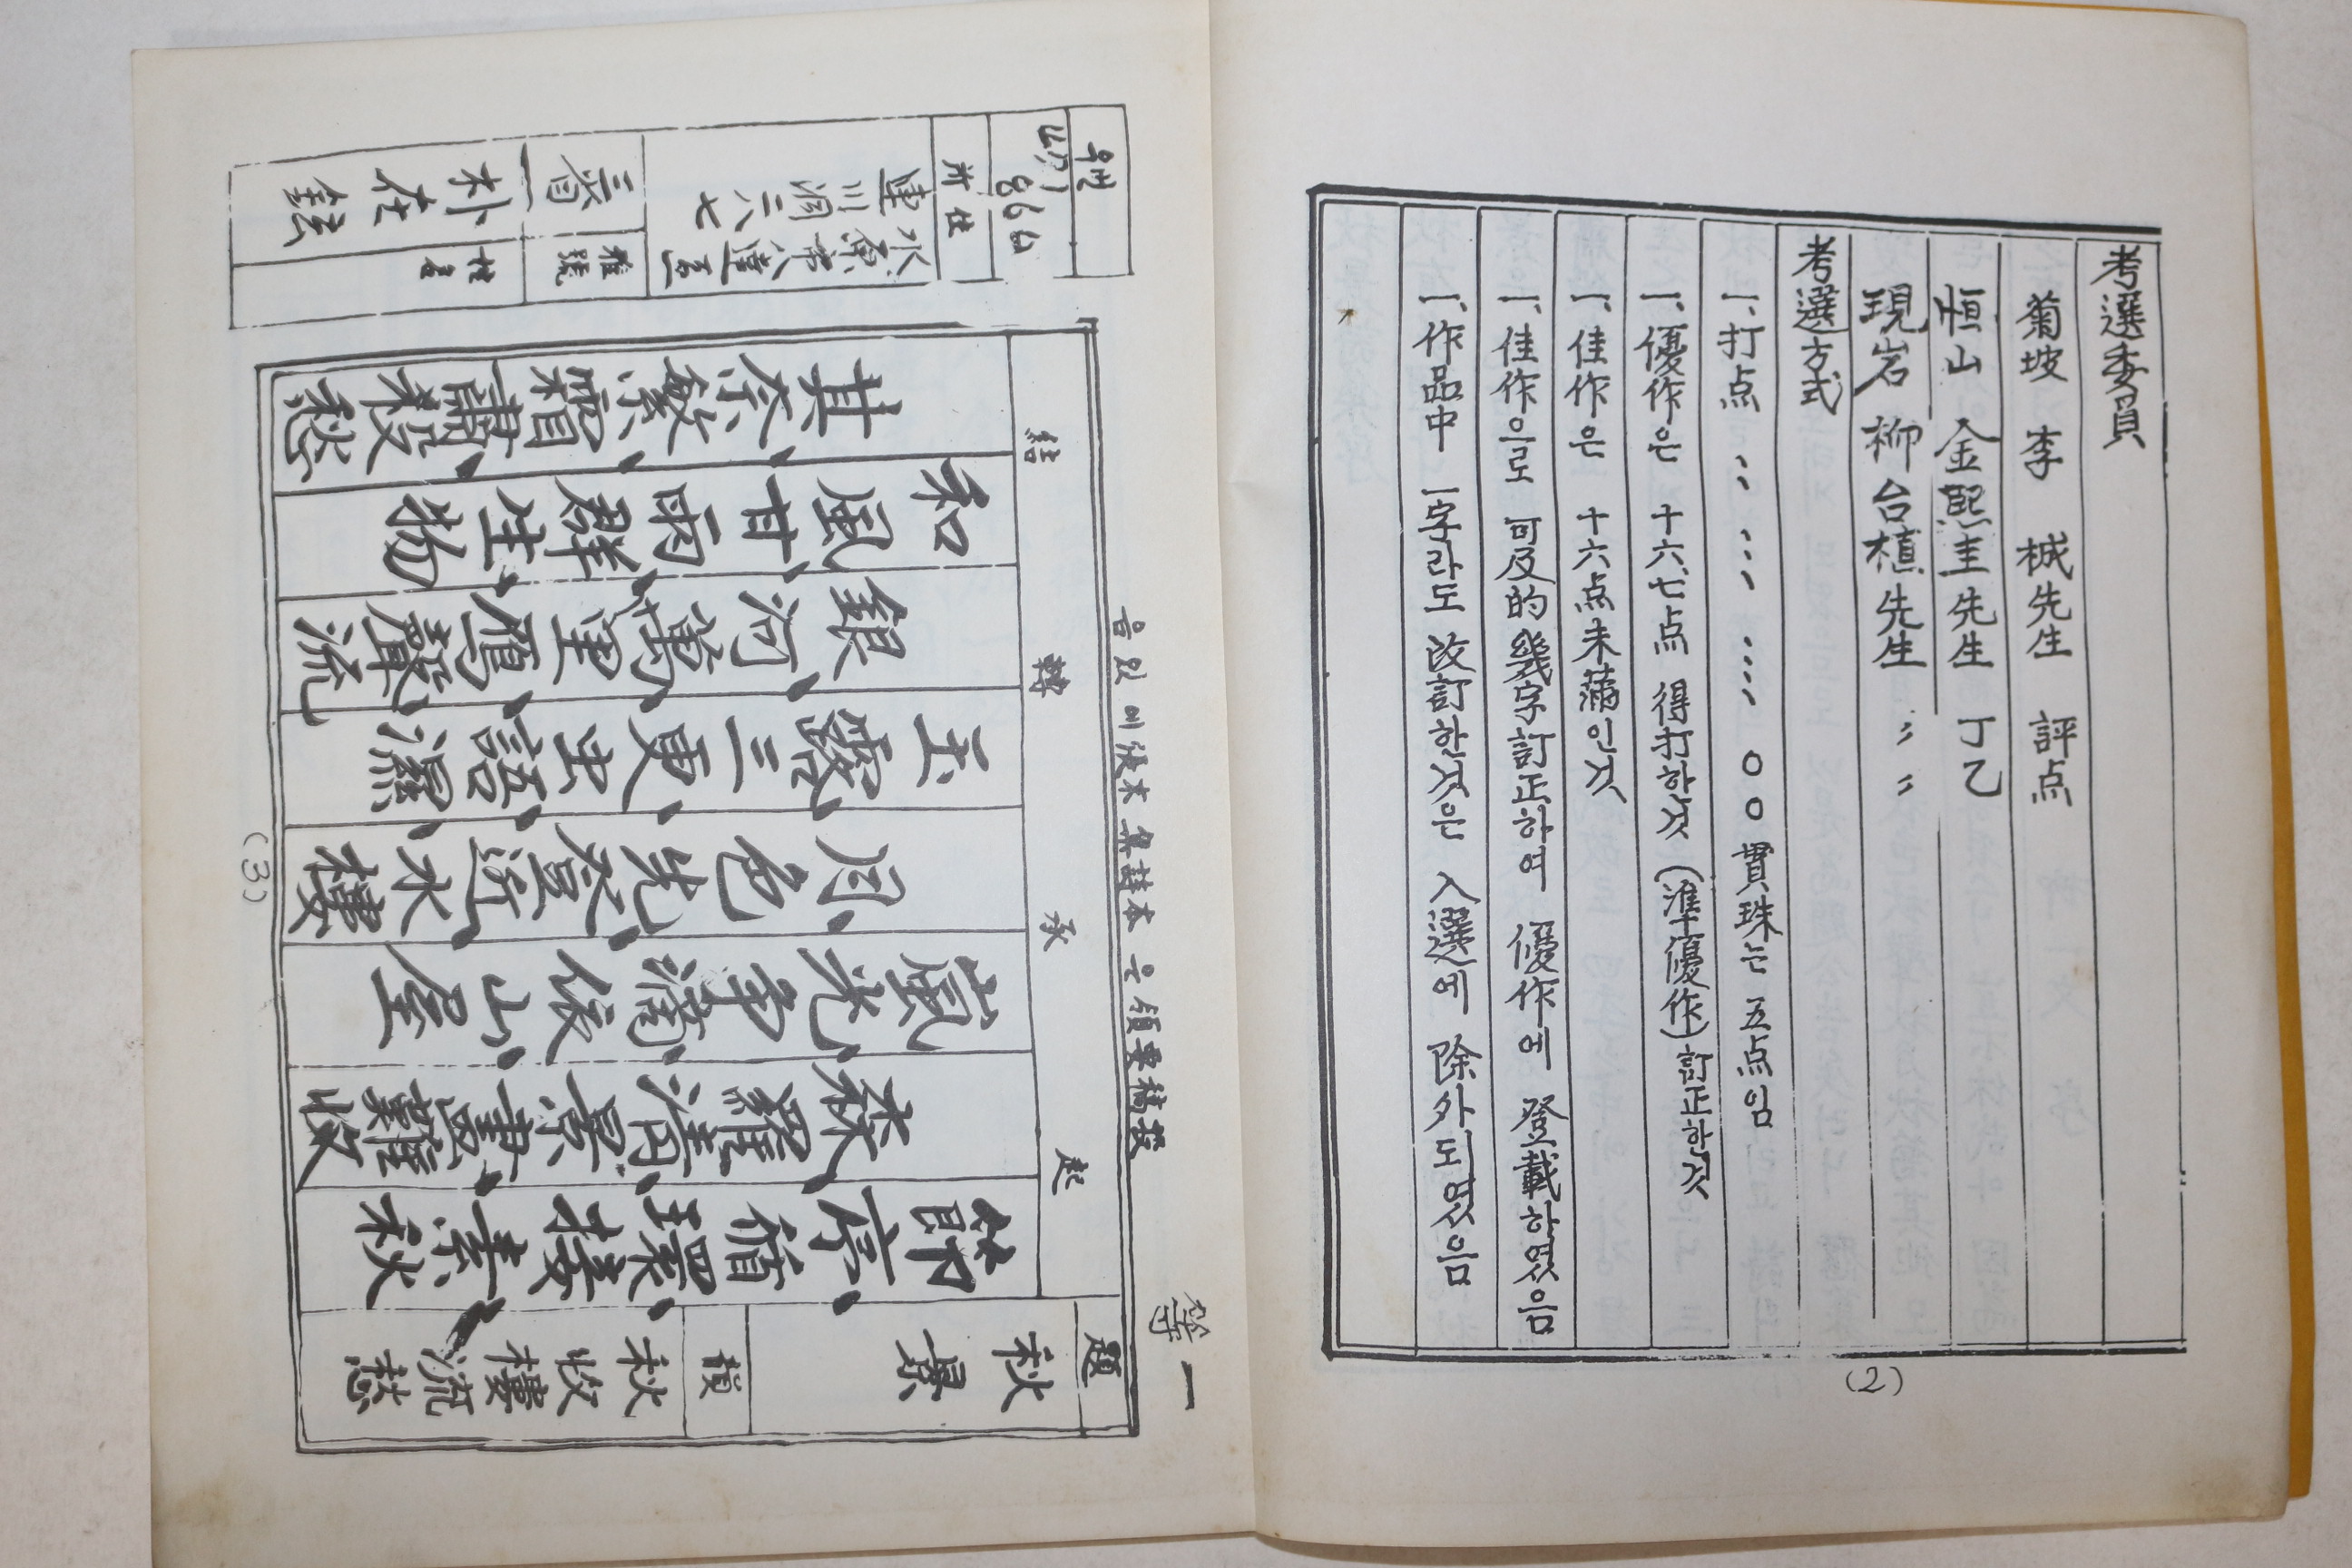 考選委員
菊坡 李 棫先生 評点
恒山 金熙圭先生 丁乙
現岩 柳台植先生 〃 〃
考選方式
一、打点는 、、 、、、 、、、、 ○ ○ 貫珠는 五点임
一、優作은 十六、七点 得打하것 (準優作)訂正한것
一、佳作은 十六点未満인것
一、佳作으로 可及的 幾字訂正하여 優作에 登載하였음
一、作品中 一字라도 改訂한것은 入選에 除外되였음
(2)
一等
投稿要領은 本詩集 末張에 있음
題
秋景
韻
秋收樓流愁
起
節序循環接素秋
森羅滿景畫難收
承
嵐光半滴依山屋
月色先登近水樓
轉
玉露三更虫語濕
銀河萬里雁聲流
結
和風甘雨群生物
其奈繁霜肅殺愁
住所
水原市八達區
川洞二八七
雅號
三省
姓名
朴在鉉
(3)